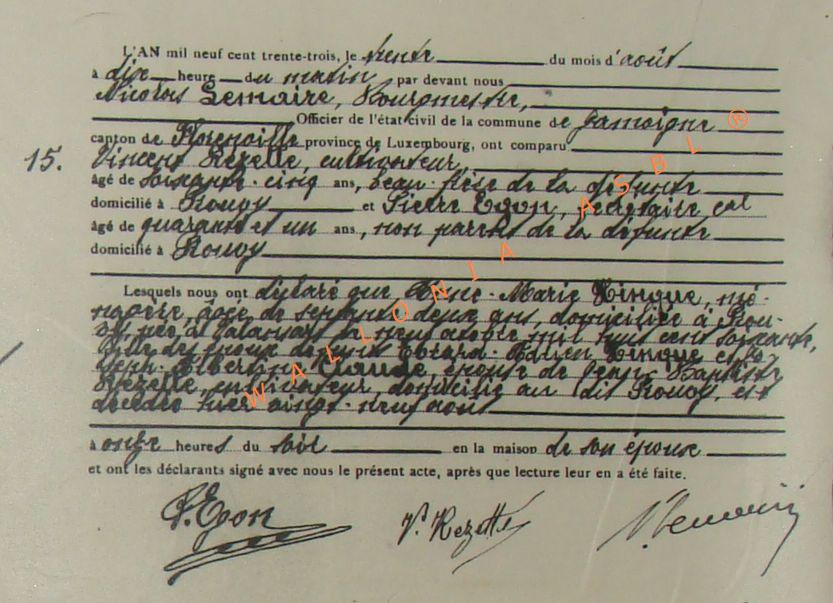 L'AN mil neuf cent trente-trois, le trente du mois d'août
à dix heure du matin par devant nous
Nicolas Lemaire, Bourgmestre,
Officier de l'état civil de la commune de Jamoigne
canton de Florenville province de Luxembourg, ont comparu
15. Vincent Rezette, cultivateur,
âgé de soixante-cinq ans, beau-frère de la défunte
domicilié à Rouvy et Pierre Egon,
âgé de quarante et un ans, non parent de la défunte
domicilié à Rouvy
Lesquels nous ont déclaré que Anne-Marie Hinque, mé-
nagère, âgée de septante deux ans, domiciliée à Rou-
vy, née à le neuf octobre mil huit cent soixante,
fille des époux défunts Hinque et
Claude, épouse de Jean-Baptiste
Rezette, cultivateur, domicilié au dit Rouvy, est
décédée hier vingt-neuf août
à onze heures du soir en la maison de son épouse
et ont les déclarants signé avec nous le présent acte, après que lecture leur en a été faite.
P. Egon V. Rezette N. Lemaire
WALLONIA ASBL ®